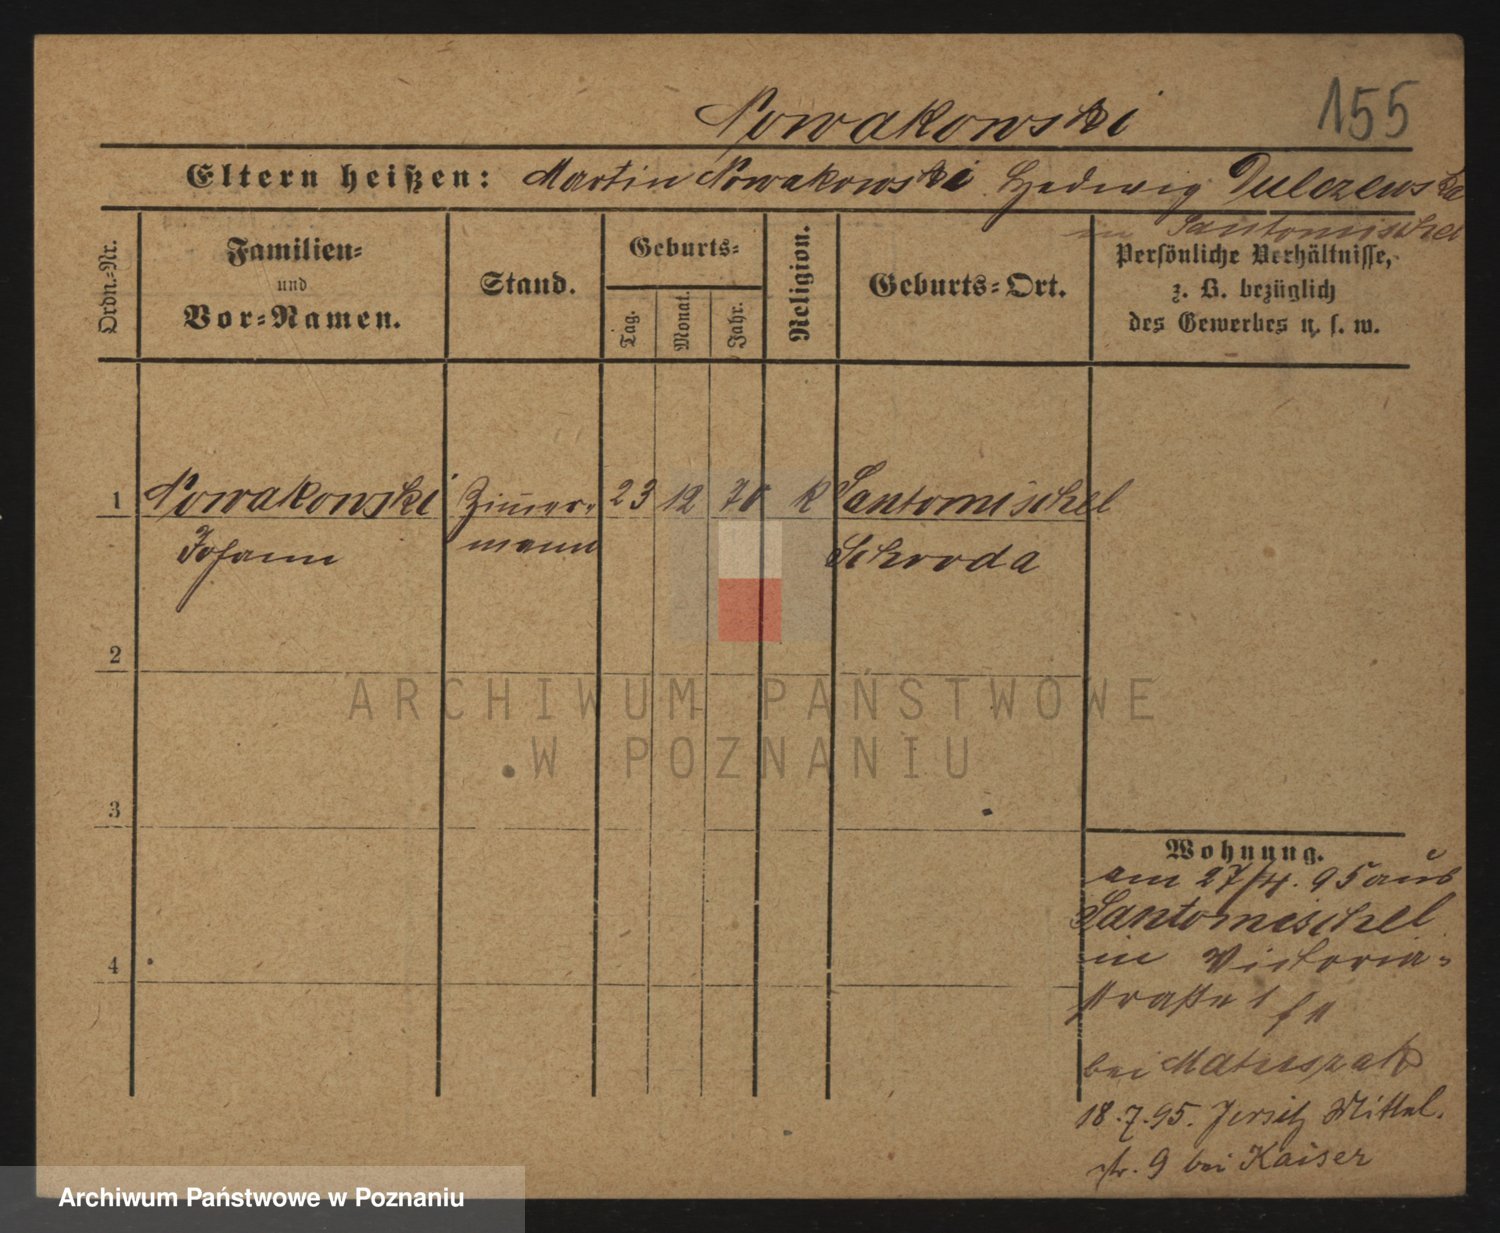 Nowakowski 155
Eltern heißen: Martin Nowakowski Hedwig Dulczewska
in Santomischel
Ordn.-Nr.
Familien-
und
Vor-Namen.
Stand.
Geburts-
Tag.
Monat.
Jahr.
Religion.
Geburts-Ort.
Persönliche Verhältnisse,
z. B. bezüglich
des Gewerbes u. s. w.
1 Nowakowski Zimmer- 23 12 70 K Santomischel
Johann mann Schroda
2
3
4
Wohnung.
am 27/4. 95 aus
Santomischel
in Victoria-
straße 1
bei Matuszak
18.7.95. Jersitz Mittel.
str. 9 bei Kaiser
ARCHIWUM PAŃSTWOWE
W POZNANIU
Archiwum Państwowe w Poznaniu